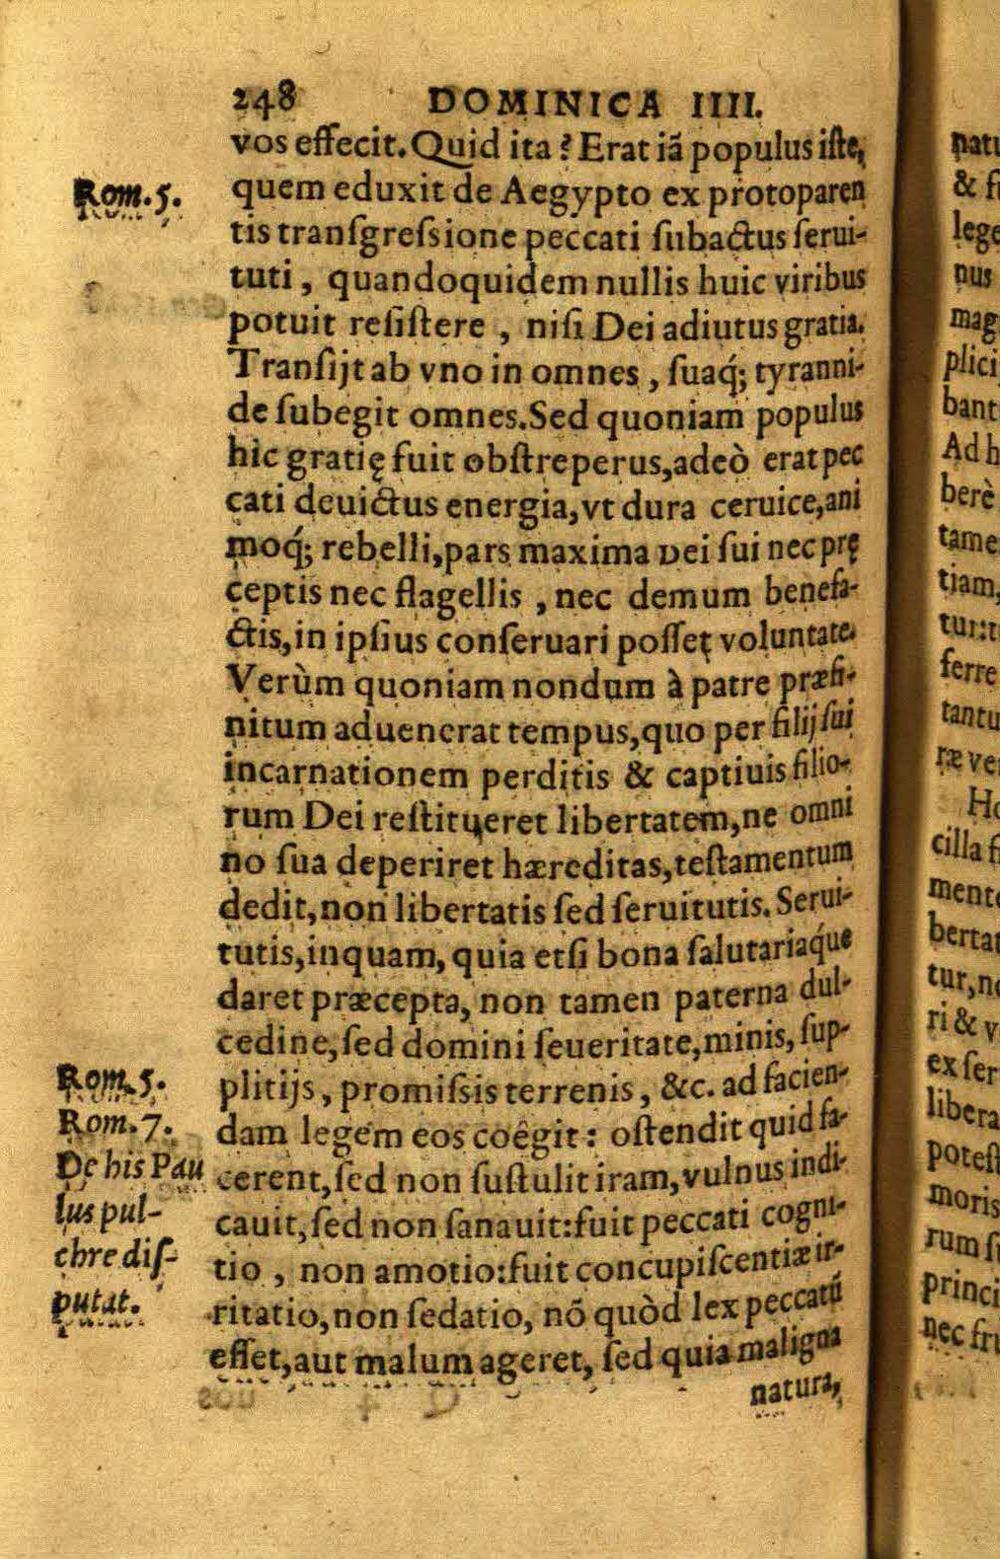 248 DOMINICA IIII.
vos effecit. Quid ita? Erat iã populus iſte,
Rom. 5.
quem eduxit de Aegypto ex protoparen
tis tranſgreſsione peccati ſubactus ſerui-
tuti, quandoquidem nullis huic viribus
potuit reſiſtere, niſi Dei adiutus gratia.
Tranſijt ab vno in omnes, ſuaq́; tyranni-
de ſubegit omnes. Sed quoniam populus
hic gratię fuit obſtreperus, adeò erat pec
cati deuictus energia, vt dura ceruice, ani
moq́; rebelli, pars maxima Dei ſui nec prę
ceptis nec flagellis, nec demum benefa-
ctis, in ipſius conſeruari poſſet voluntate.
Verùm quoniam nondum à patre præfi-
nitum aduenerat tempus, quo per filij ſui
incarnationem perditis & captiuis filio-
rum Dei reſtitueret libertatem, ne omni
no ſua deperiret hæreditas, teſtamentum
dedit, non libertatis ſed ſeruitutis. Serui-
tutis, inquam, quia etſi bona ſalutariaq́ue
daret præcepta, non tamen paterna dul-
cedine, ſed domini ſeueritate, minis, ſup-
plitijs, promiſsis terrenis, &c. ad facien-
dam legem eos coêgit: oſtendit quid fa-
cerent, ſed non ſuſtulit iram, vulnus indi-
cauit, ſed non ſanauit: fuit peccati cogni-
tio, non amotio: fuit concupiſcentiæ ir-
ritatio, non ſedatio, nõ quòd lex peccatũ
eſſet, aut malum ageret, ſed quia maligna
natura,
Rom. 5.
Rom. 7.
De his Pau
lus pul-
chre diſ-
putat.
pati
& fi
lege
nus
mag
plici
bant
Ad h
berè
tame
tiam,
tur: t
ferre
tantu
ræ ve
Ho
cilla f
mente
berta
tur, n
ri & v
ex ſer
libera
poteſt
moris
rum ſ
princi
nec fri